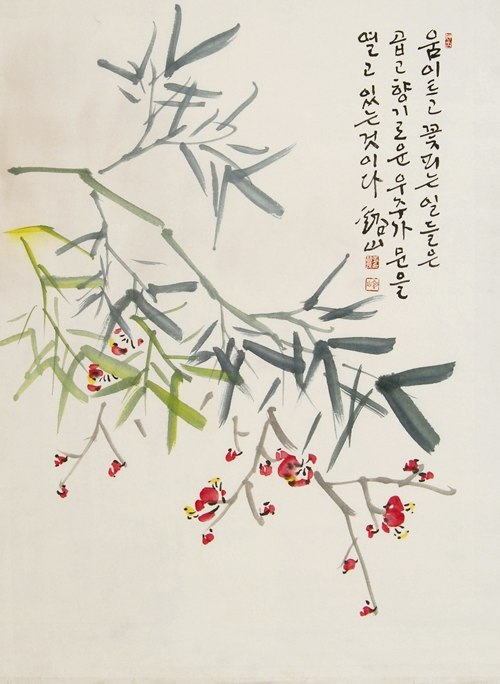 움이트고 꽃피는 일들은
곱고 향기로운 우주가 문을
열고 있는 것이다 山